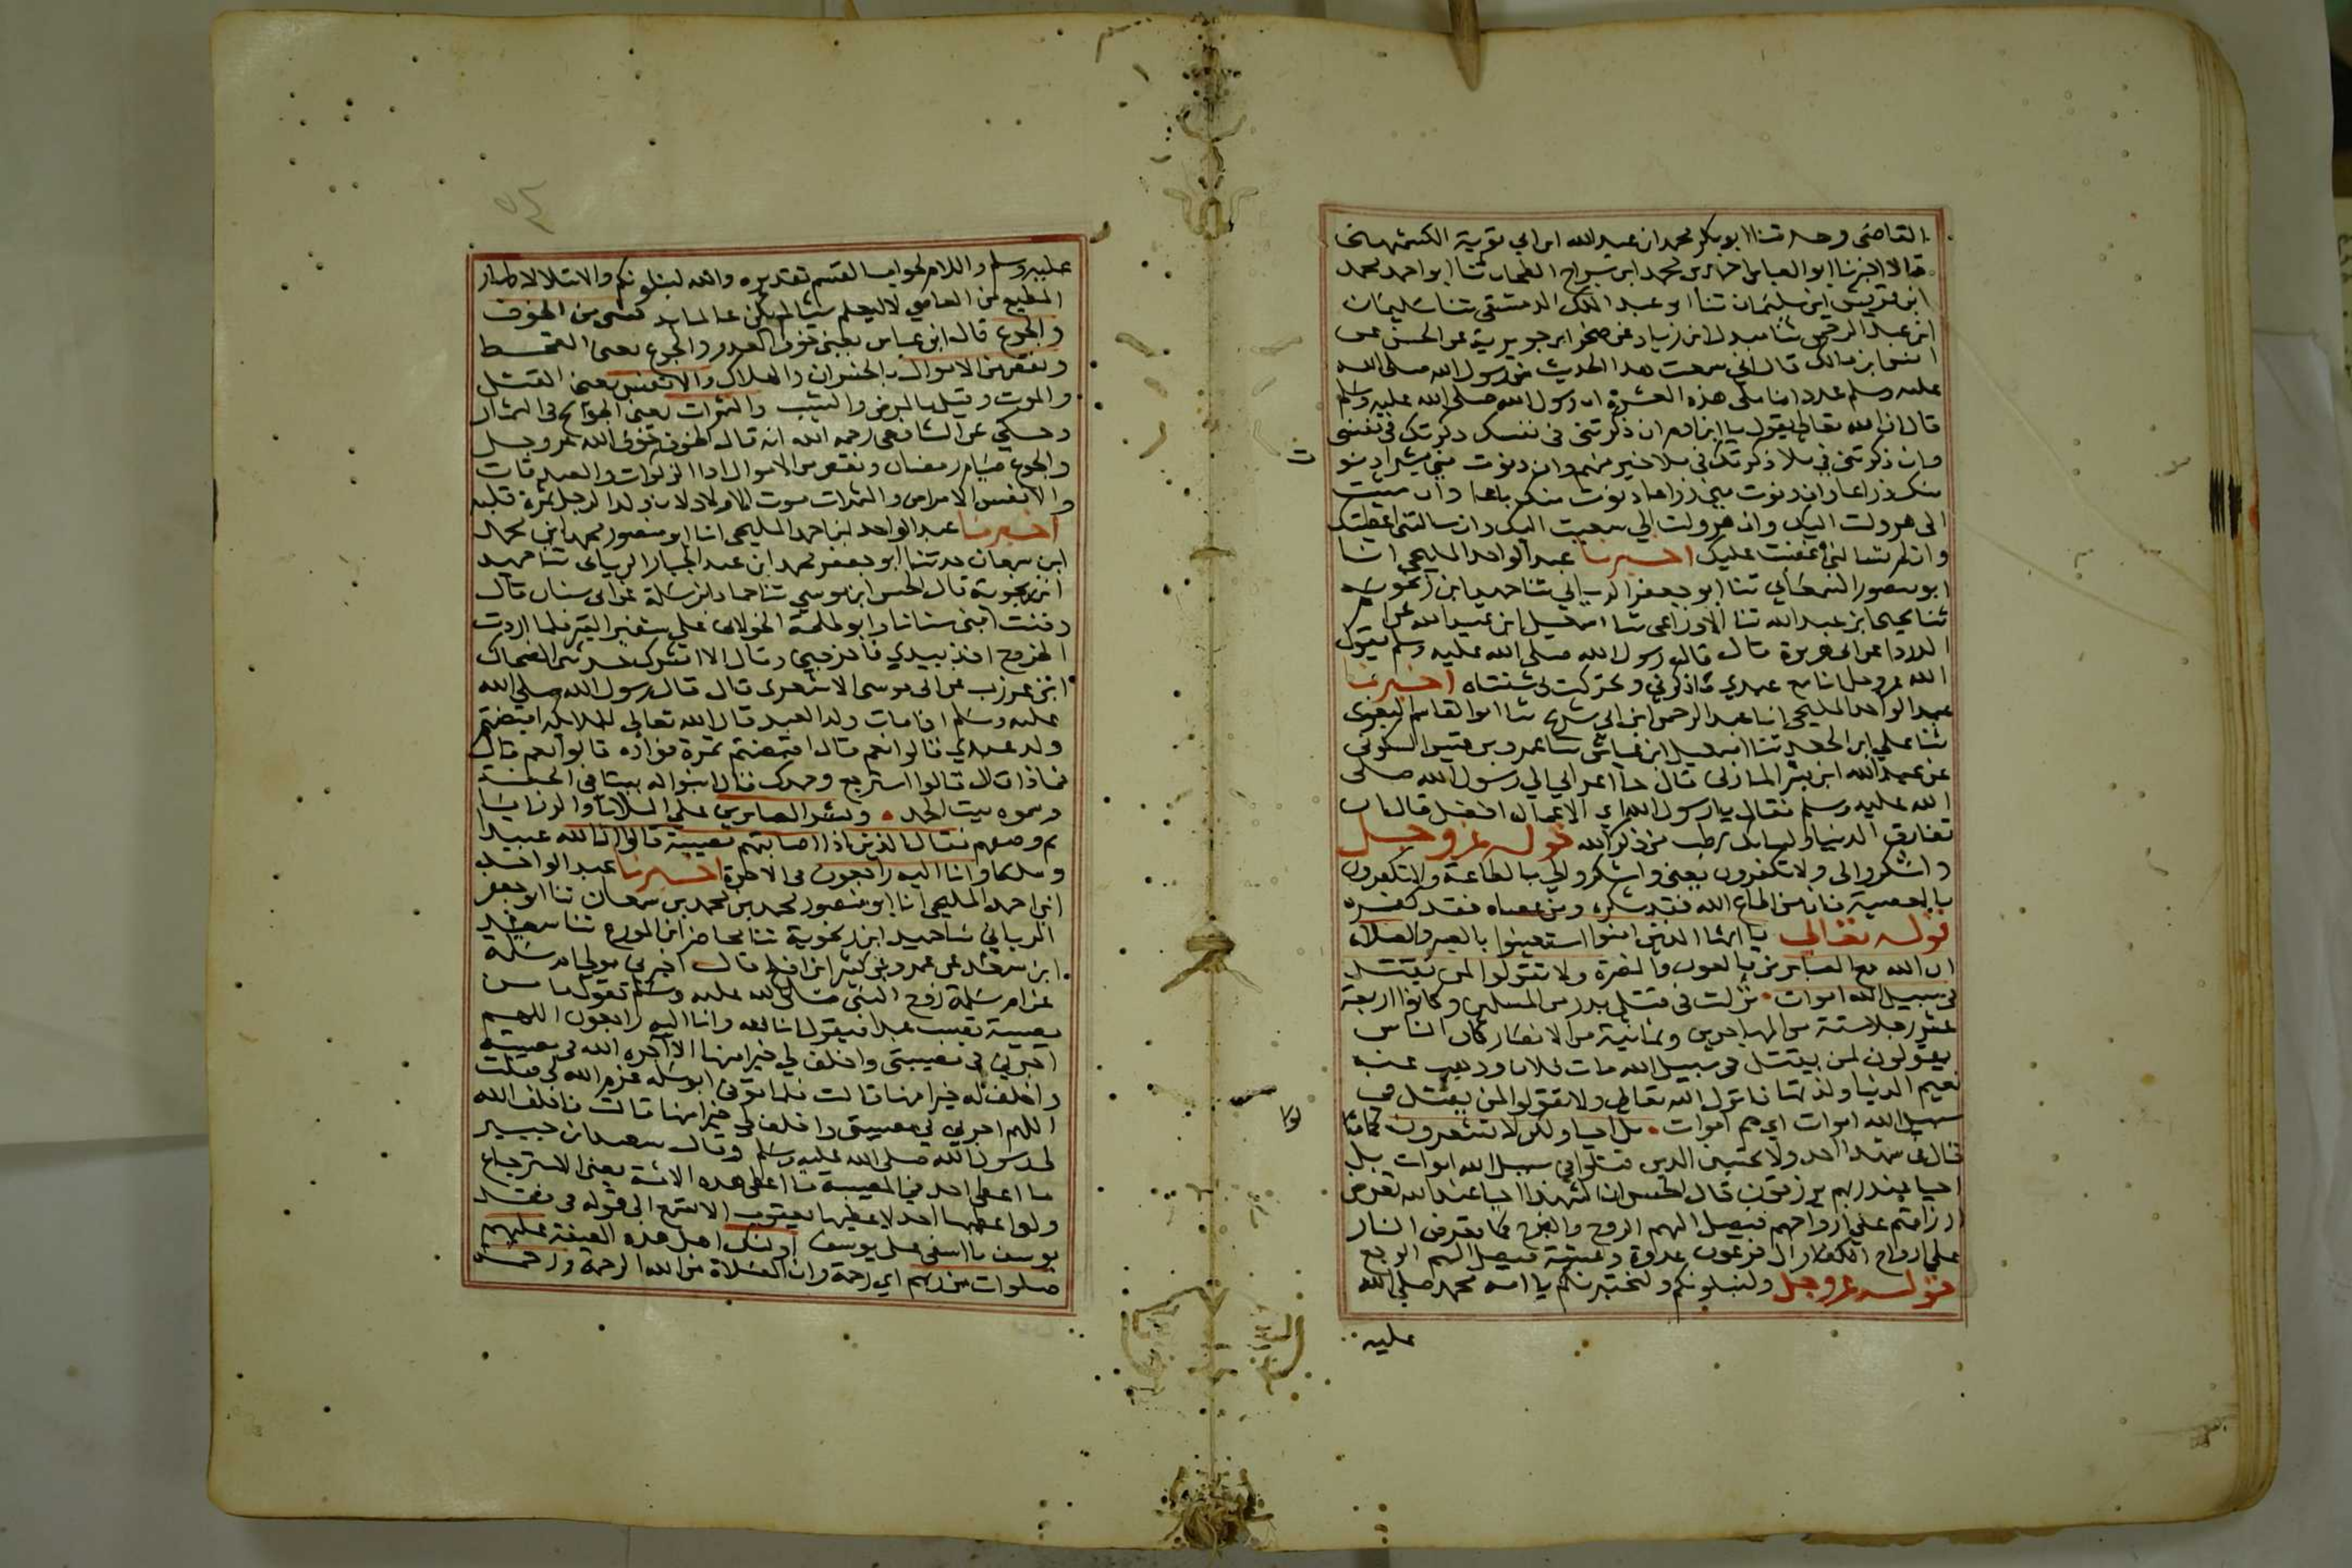 القاضى وحدثنا ابو بكر محمد ابن عبد الله ابن ابي توبة الكشمهينى
قالا اخبرنا ابو العباس احمد بن محمد ابن سراج الطحان ثنا ابو احمد محمد
ابن قريش ابن سليمان ثنا ابو عبد الملك الدمشقى ثنا سليمان
ابن عبد الرحمن ثنا منذر ابن زياد عن صخر ابن جويرية عن الحسن عن
انس ابن مالك قال انى سمعت هذا الحديث من رسول الله صلى الله
عليه وسلم عدد اناملى هذه العشرة ان رسول الله صلى الله عليه وسلم
قال ان الله تعالى يقول يا ابن ادم ان ذكرتنى فى نفسك ذكرتك فى نفسى
وان ذكرتنى فى ملا ذكرتك فى ملا خير منهم وان دنوت منى شبرا دنوت
منك ذراعا وان دنوت منى ذراعا دنوت منك باعا وان مشيت
الى هرولت اليك وان هرولت الي سعيت اليك وان سالتنى اعطيتك
وان لم تسالنى غضبت عليك اخبرنا عبد الواحد المليحى انا
ابو منصور السمعانى ثنا ابو جعفر الريانى ثنا حميد ابن زنجويه
ثنا يحيى ابن عبد الله ثنا الاوزاعى ثنا اسمعيل ابن عبيد الله عن ام
الدردا عن ابى هريرة قال قال رسول الله صلى الله عليه وسلم يقول
الله عز وجل انا مع عبدي ما ذكرني وتحركت بى شفتاه اخبرنا
عبد الواحد المليحى انا عبد الرحمن ابن ابي شريح ثنا ابو القاسم البغوى
ثنا علي ابن الجعد ثنا اسمعيل ابن عياش ثنا عمرو بن قيس السكونى
عن عبد الله ابن بشر المازنى قال جا اعرابي الي رسول الله صلى
الله عليه وسلم فقال يا رسول الله اي الاعمال افضل قال ان
تفارق الدنيا ولسانك رطب من ذكر الله قوله عز وجل
واشكروا لى ولا تكفرون يعنى واشكروا لي بالطاعة ولا تكفرون
بالمعصية فان من اطاع الله فقد شكره ومن عصاه فقد كفره
قوله تعالى يا ايها الذين امنوا استعينوا بالصبر والصلاة
ان الله مع الصابرين بالعون والنصرة ولا تقولوا لمن يقتل
فى سبيل الله اموات نزلت فى قتلى بدر من المسلمين وكانوا اربعة
عشر رجلا ستة من المهاجرين وثمانية من الانصار كان الناس
يقولون لمن يقتل فى سبيل الله مات فلان وذهب عنه
نعيم الدنيا ولذتها فانزل الله تعالى ولا تقولوا لمن يقتل فى
سبيل الله اموات اي هم اموات بل احيا ولكن لا تشعرون كما
قال فى شهدا احد ولا تحسبن الذين قتلوا فى سبيل الله اموات بل
احيا عند ربهم يرزقون قال الحسن ان الشهدا احيا عند الله تعرض
ارزاقهم على ارواحهم فيصل اليهم الروح والفرح كما تعرض النار
على ارواح ال فرعون غدوة وعشية فيصل اليهم الوجع
قوله عز وجل ولنبلونكم ولنختبرنكم يا امه محمد صلى الله
عليه
عليه وسلم واللام لجواب القسم تقديره والله لنبلونكم والابتلا لاظهار
المطيع من العاصي لا ليعلم شيا لم يكن عالما به بشى من الخوف
والجوع قال ابن عباس يعنى خوف العدو والجوع يعنى القحط
ونقص من الاموال بالخسران والهلاك والانفس يعنى القتل
والموت وقيل بالمرض والشيب والثمرات يعنى الجوائح فى الثمار
وحكي عن الشافعى رحمه الله انه قال الخوف خوف الله عز وجل
والجوع صيام رمضان ونقص من الاموال ادا الزكوات والصدقات
والانفس الامراض والثمرات موت الاولاد لان ولد الرجل ثمرة قلبه
اخبرنا عبد الواحد ابن احمد المليحى انا ابو منصور محمد ابن محمد
ابن سمعان حدثنا ابو جعفر محمد ابن عبد الجبار الريانى ثنا حميد
ابن زنجوية قال الحسن ابن موسي ثنا حماد ابن سلمة عن ابى سنان قال
دفنت ابنى سنانا وابو طلحة الخولانى على شفير القبر فلما اردت
الخروج اخذ بيدي فاخرجنى وقال الا ابشرك حدثنى الضحاك
ابن عرزب عن ابى موسى الاشعرى قال قال رسول الله صلى الله
عليه وسلم اذا مات ولد العبد قال الله تعالى لملائكته اقبضتم
ولد عبدي قالوا نعم قال اقبضتم ثمرة فواده قالوا نعم قال
فماذا قال قالوا استرجع وحمدك قال ابنوا له بيتا فى الجنة
وسموه بيت الحمد وبشر الصابرين على البلايا والرزايا
ثم وصفهم فقال الذين اذا اصابتهم مصيبة قالوا انا لله عبيدا
وملكا وانا اليه راجعون فى الاخرة اخبرنا عبد الواحد
ابن احمد المليحى انا ابو منصور محمد بن محمد بن سمعان ثنا ابو جعفر
الريانى ثنا حميد ابن زنجوية ثنا محاضر ابن المورع ثنا سعيد
ابن سعد عن عمرو بن كثير ابن افلح قال اخبرنى مولى ام سلمة
عن ام سلمة زوج النبى صلى الله عليه وسلم تقول ما من
مصيبة تصيب عبدا فيقول انا لله وانا اليه راجعون اللهم
اجرني فى مصيبتى واخلف لي خيرا منها الا اجره الله فى مصيبته
واخلف له خيرا منها قالت فلما توفى ابو سلمه عزم الله لى فقلت
اللهم اجرني في مصيبتى واخلف لى خيرا منها قالت فاخلف الله
لى رسول الله صلى الله عليه وسلم وقال سعيد ابن جبير
ما اعطى احد فى المصيبة ما اعطى هذه الامة يعنى الاسترجاع
ولو اعطيها احد لاعطيها يعقوب الا تسمع الى قوله فى فقد
يوسف يا اسفى على يوسف اولئك اهل هذه الصفة عليهم
صلوات من ربهم اي رحمة وان الصلاة من الله الرحمة ورحمة